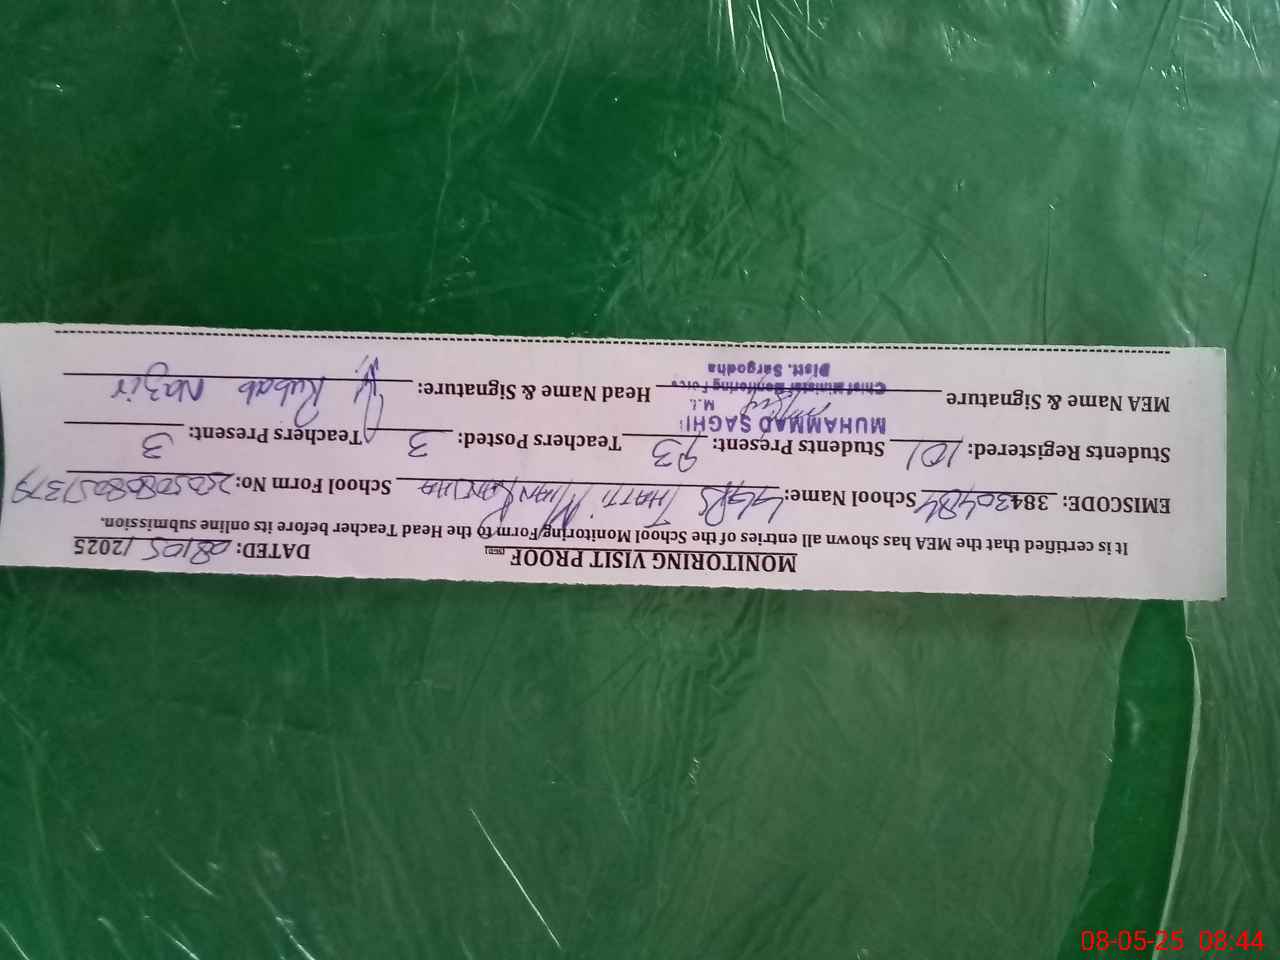 MONITORING VISIT PROOF
DATED: 08/05 /2025
It is certified that the MEA has shown all entries of the School Monitoring Form to the Head Teacher before its online submission.
EMISCODE: 38430484 School Name: GGPS THATTI MIAN School Form No:
Students Registered: 101 Students Present: 93 Teachers Posted: 3 Teachers Present: 3
MUHAMMAD SAGHI
MEA Name & Signature Head Name & Signature: Rubab Nazir
Chief Minister Monitoring Force
Distt. Sargodha
08-05-25 08:44